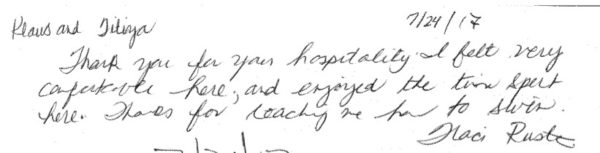 Klaus and 7/24/17
Thank you for your hospitality. I felt very
comfortable here, and enjoyed the time spent
here. Thanks for teaching me how to swim.
Traci